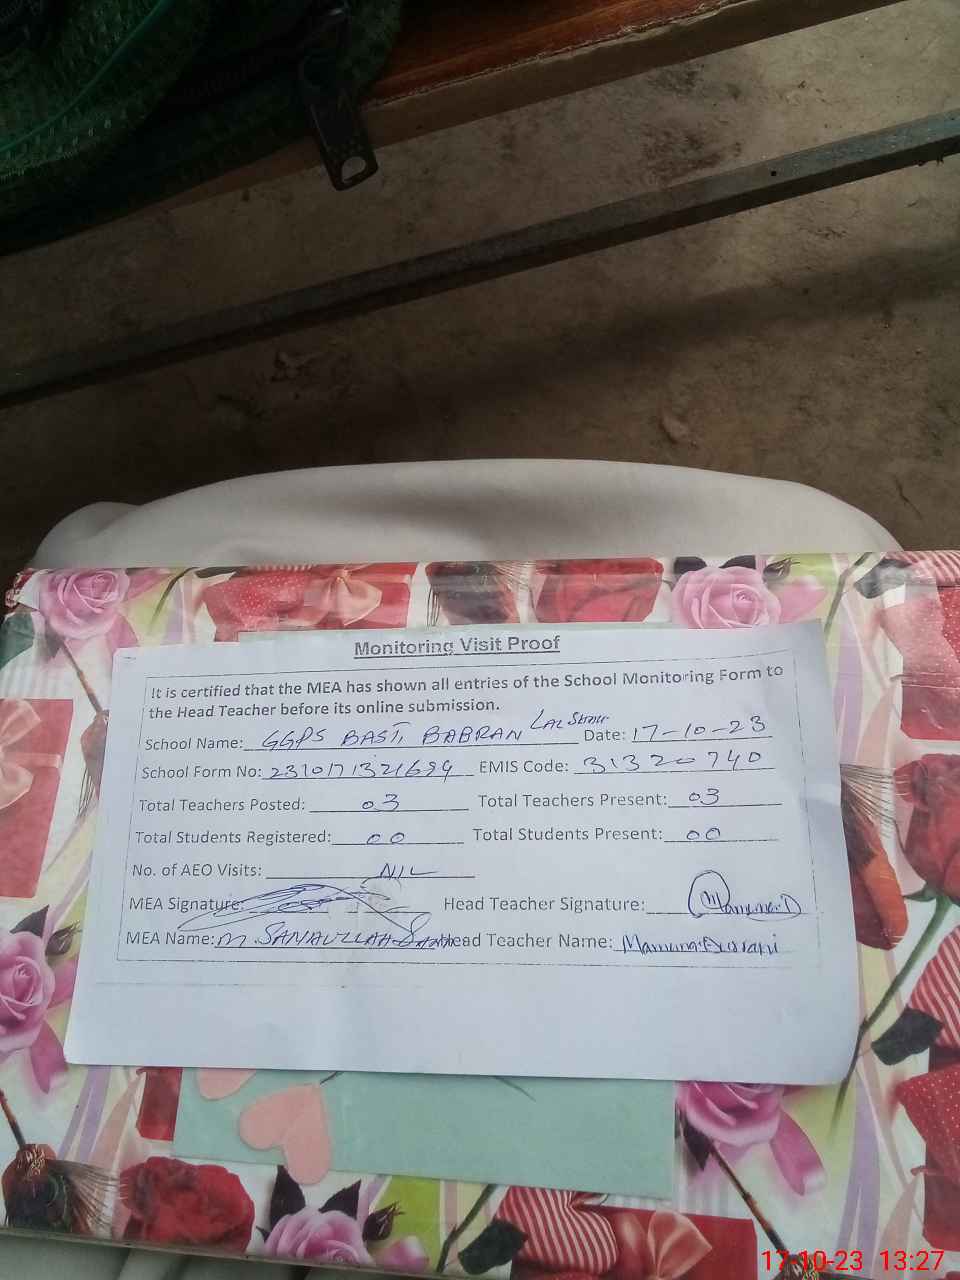 Monitoring Visit Proof
It is certified that the MEA has shown all entries of the School Monitoring Form to
the Head Teacher before its online submission.
School Name: GGPS BASTI BABRAN LAL Date: 17-10-23
School Form No: 231017132 EMIS Code: 31320740
Total Teachers Posted: 03 Total Teachers Present: 03
Total Students Registered: 00 Total Students Present: 00
No. of AEO Visits: NIL
MEA Signature: Head Teacher Signature: Mamuna.D
MEA Name: M. SANAULLAH Head Teacher Name: Mamuna Durrani
17-10-23 13:27